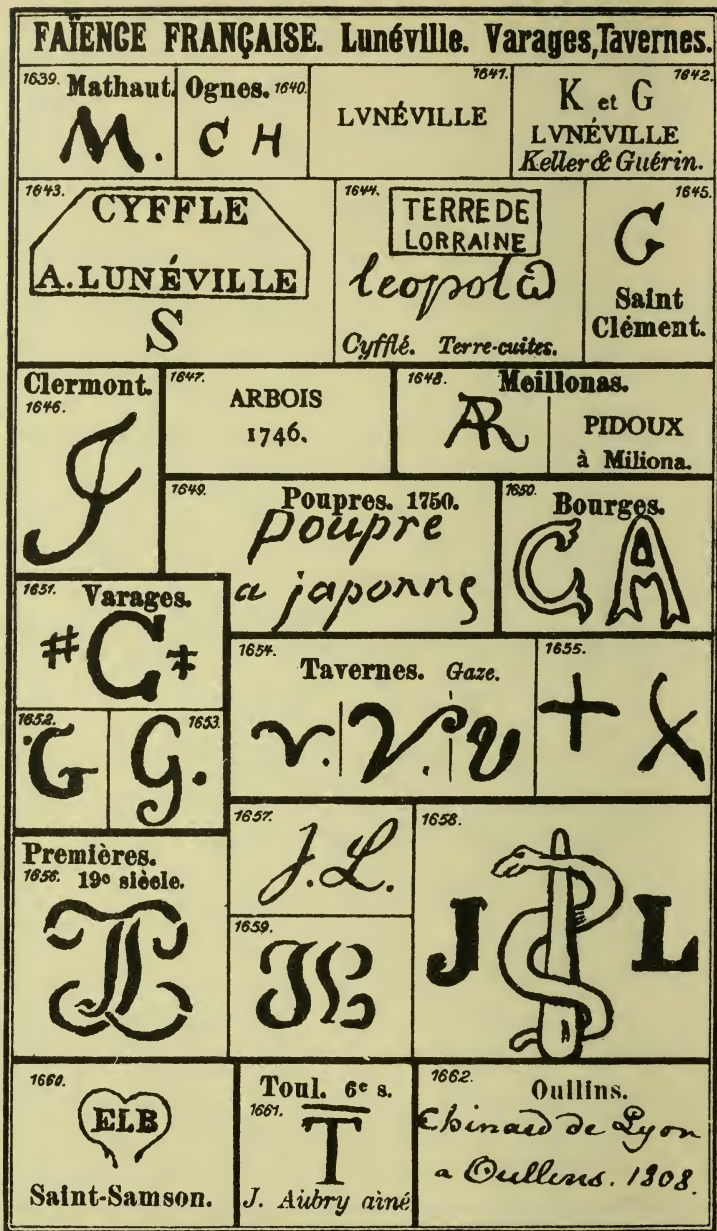 FAÏENCE FRANÇAISE. Lunéville. Varages, Tavernes.
1639. Mathaut.
M.
Ognes. 1640.
C H
1641.
LVNÉVILLE
1642.
K et G
LVNÉVILLE
Keller & Guérin.
1643.
CYFFLE
A. LUNÉVILLE
S
1644.
TERRE DE
LORRAINE
leopold
Cyfflé. Terre-cuites.
1645.
G
Saint
Clément.
Clermont.
1646.
J
1647.
ARBOIS
1746.
1648. Meillonas.
AR
PIDOUX
à Miliona.
1649.
Poupres. 1750.
poupre
a japonne
1650.
Bourges.
C A
1651.
Varages.
C
1652.
G
1653.
G.
1654.
Tavernes. Gaze.
v. V. v
1655.
+ X
Premières.
1656. 19e siècle.
JL
1657.
J. L.
1658.
J L
1659.
JL
1660.
ELB
Saint-Samson.
Toul. 6e s.
1661.
T
J. Aubry aîné
1662.
Oullins.
Chinard de Lyon
a Oullens. 1808.